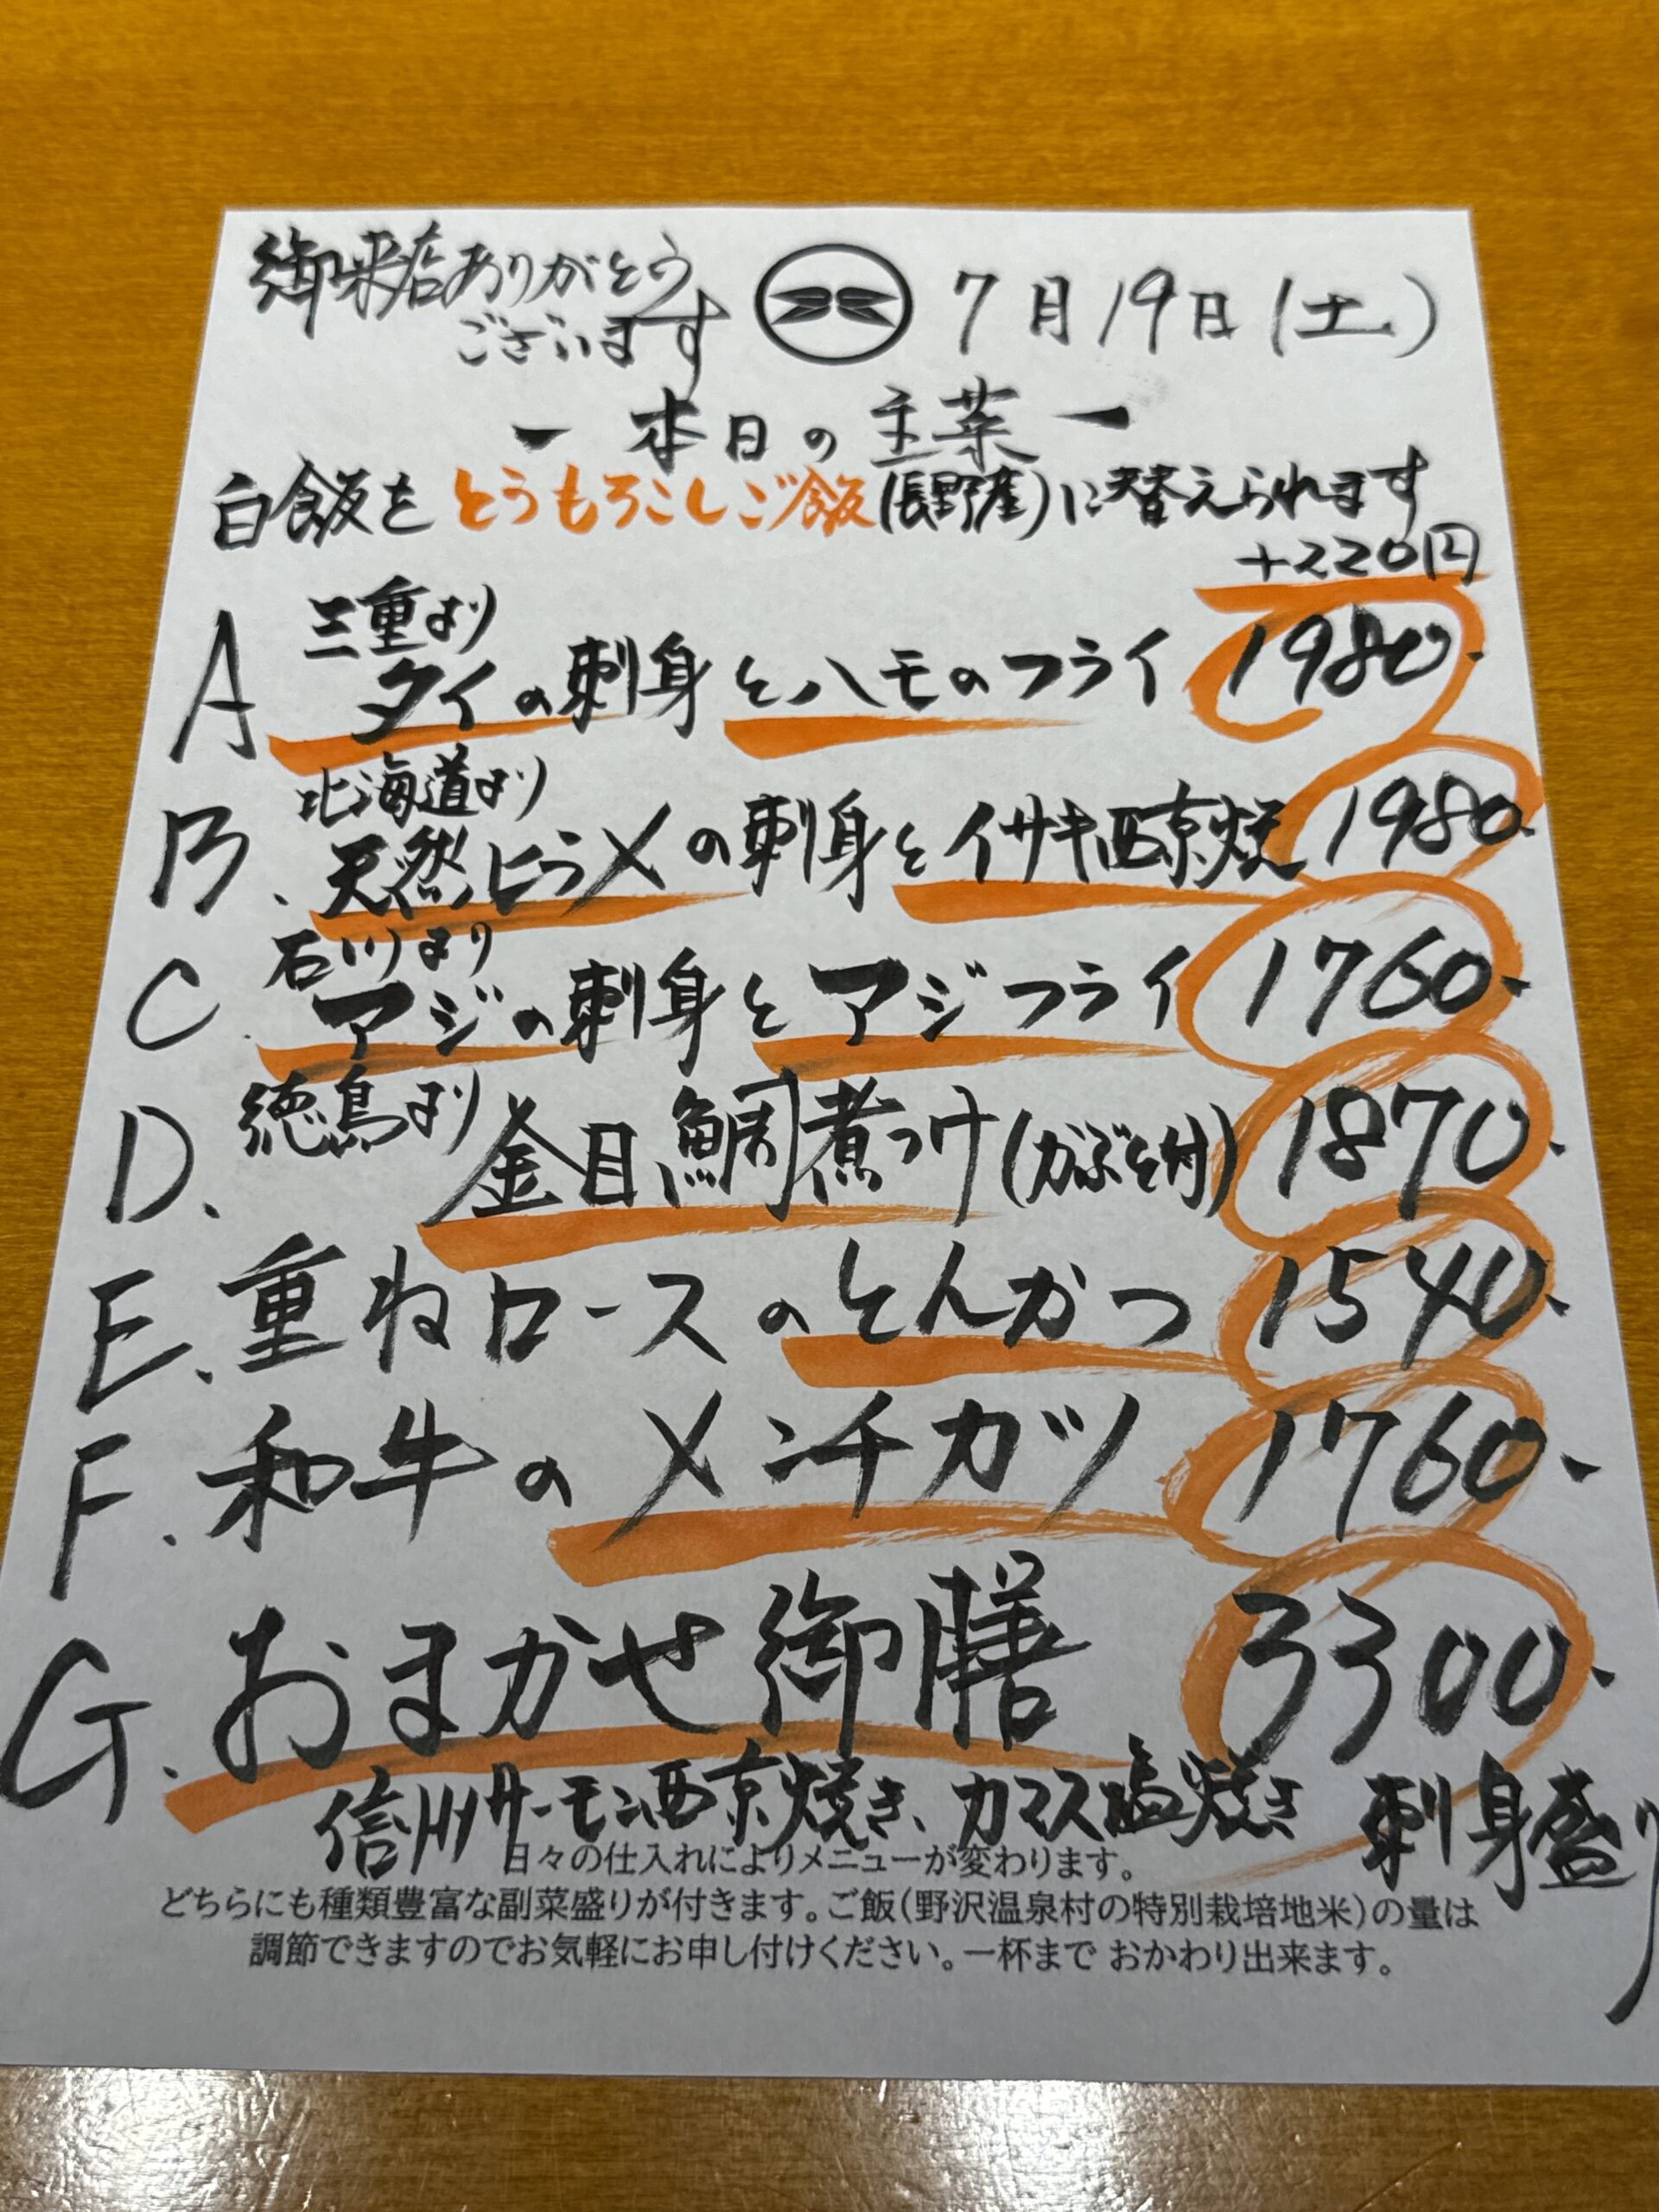 御来店ありがとう
ございます
7月19日(土)
ー本日の主菜ー
白飯をとうもろこしご飯(長野産)に替えられます
+220円
三重より
A タイの刺身とハモのフライ 1980.
北海道より
B. 天然ヒラメの刺身とイサキ西京焼 1980.
石川より
C. アジの刺身とアジフライ 1760.
徳島より
D. 金目鯛煮つけ(かぶと付) 1870.
E. 重ねロースのとんかつ 1540.
F. 和牛のメンチカツ 1760.
G. おまかせ御膳 3300.
信州サーモン西京焼き、カマス塩焼き 刺身盛り
日々の仕入れによりメニューが変わります。
どちらにも種類豊富な副菜盛りが付きます。ご飯(野沢温泉村の特別栽培地米)の量は
調節できますのでお気軽にお申し付けください。一杯まで おかわり出来ます。